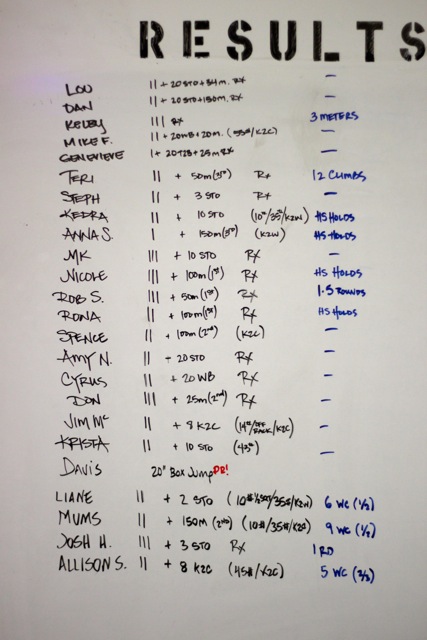 RESULTS
LOU || + 20 STO + 34m. Rx —
DAN || + 20 STO + 150m. Rx —
KELBY ||| Rx 3 METERS
MIKE F. || + 20WB + 20m. (55#/K2C) —
GENEVIEVE | + 20T2B + 25m Rx —
TERI || + 50m (3rd) Rx 12 CLIMBS
STEPH || + 3 STO Rx —
KEDRA || + 10 STO (10#/35#/K2W) HS HOLDS
ANNA S. | + 150m (3rd) (K2W) HS HOLDS
MK ||| + 10 STO Rx —
NICOLE ||| + 100m (1st) Rx HS HOLDS
ROB S. ||| + 50m (1st) Rx 1.5 ROUNDS
RONA || + 100m (1st) Rx HS HOLDS
SPENCE || + 100m (2nd) (K2C) —
AMY N. || + 20 STO Rx —
CYRUS || + 20 WB Rx —
DON ||| + 25m (2nd) Rx —
JIM Mc || + 8 K2C (14#/OFF RACK/K2C) —
KRISTA || + 10 STO (43#) —
DAVIS 20" BOX JUMP PR!
LIANE || + 2 STO (10# /35#/K2W) 6 WC
MUMS || + 150M (2nd) (10#/35#/K2C) 9 WC
JOSH H. ||| + 3 STO Rx 1 RD
ALLISON S. || + 8 K2C (45#/K2C) 5 WC